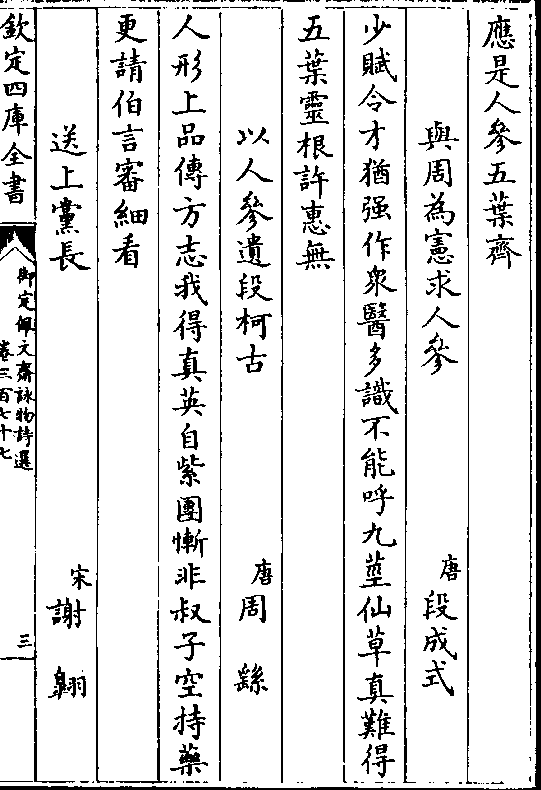 應是人參五葉齊
與周為憲求人參 唐 段成式
少賦令才猶强作衆醫多識不能呼九莖仙草真難得
五葉靈根許惠無
以人參遺段柯古 唐 周繇
人形上品傳方志我得真英自紫團慚非叔子空持藥
更請伯言審細看
送上黨長 宋 謝翺
欽定四庫全書
御定佩文齋詠物詩選
卷三百七十七
三